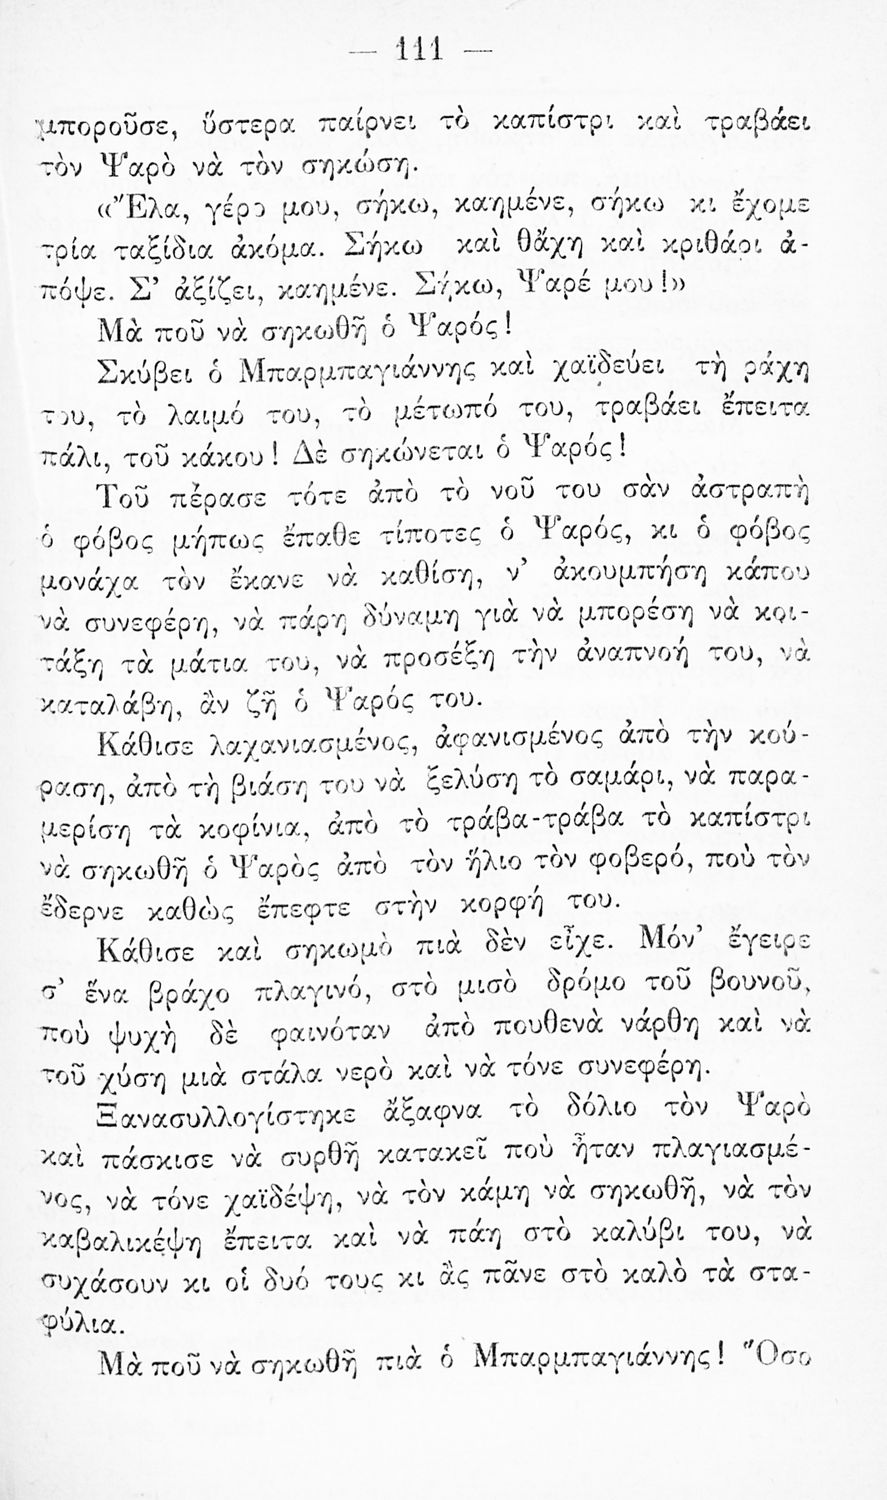 — 111 —
μποροῦσε, ὕστερα παίρνει τὸ καπίστρι καὶ τραβάει
τὸν Ψαρὸ νὰ τὸν σηκώσῃ.
«Ἔλα, γέρο μου, σήκω, καημένε, σήκω κι ἔχομε
τρία ταξίδια ἀκόμα. Σήκω καὶ θἄχῃ καὶ κριθάρι ἀ-
πόψε. Σ' ἀξίζει, καημένε. Σήκω, Ψαρέ μου!»
Μὰ ποῦ νὰ σηκωθῇ ὁ Ψαρός!
Σκύβει ὁ Μπαρμπαγιάννης καὶ χαϊδεύει τὴ ράχη
του, τὸ λαιμό του, τὸ μέτωπό του, τραβάει ἔπειτα
πάλι, τοῦ κάκου! Δὲ σηκώνεται ὁ Ψαρός!
Τοῦ πέρασε τότε ἀπὸ τὸ νοῦ του σὰν ἀστραπὴ
ὁ φόβος μήπως ἔπαθε τίποτες ὁ Ψαρός, κι ὁ φόβος
μονάχα τὸν ἔκανε νὰ καθίσῃ, ν' ἀκουμπήσῃ κάπου
νὰ συνεφέρῃ, νὰ πάρῃ δύναμη γιὰ νὰ μπορέσῃ νὰ κοι-
τάξῃ τὰ μάτια του, νὰ προσέξῃ τὴν ἀναπνοή του, νὰ
καταλάβῃ, ἂν ζῇ ὁ Ψαρός του.
Κάθισε λαχανιασμένος, ἀφανισμένος ἀπὸ τὴν κού-
ραση, ἀπὸ τὴ βιάση του νὰ ξελύσῃ τὸ σαμάρι, νὰ παρα-
μερίσῃ τὰ κοφίνια, ἀπὸ τὸ τράβα-τράβα τὸ καπίστρι
νὰ σηκωθῇ ὁ Ψαρὸς ἀπὸ τὸν ἥλιο τὸν φοβερό, ποὺ τὸν
ἔδερνε καθὼς ἔπεφτε στὴν κορφή του.
Κάθισε καὶ σηκωμὸ πιὰ δὲν εἶχε. Μόν' ἔγειρε
σ' ἕνα βράχο πλαγινό, στὸ μισὸ δρόμο τοῦ βουνοῦ,
ποὺ ψυχὴ δὲ φαινόταν ἀπὸ πουθενὰ νάρθῃ καὶ νὰ
τοῦ χύσῃ μιὰ στάλα νερὸ καὶ νὰ τόνε συνεφέρῃ.
Ξανασυλλογίστηκε ἄξαφνα τὸ δόλιο τὸν Ψαρὸ
καὶ πάσκισε νὰ συρθῇ κατακεῖ ποὺ ἦταν πλαγιασμέ-
νος, νὰ τόνε χαϊδέψῃ, νὰ τὸν κάμῃ νὰ σηκωθῇ, νὰ τὸν
καβαλικέψῃ ἔπειτα καὶ νὰ πάῃ στὸ καλύβι του, νὰ
συχάσουν κι οἱ δυό τους κι ἂς πᾶνε στὸ καλὸ τὰ στα-
φύλια.
Μὰ ποῦ νὰ σηκωθῇ πιὰ ὁ Μπαρμπαγιάννης! Ὅσο